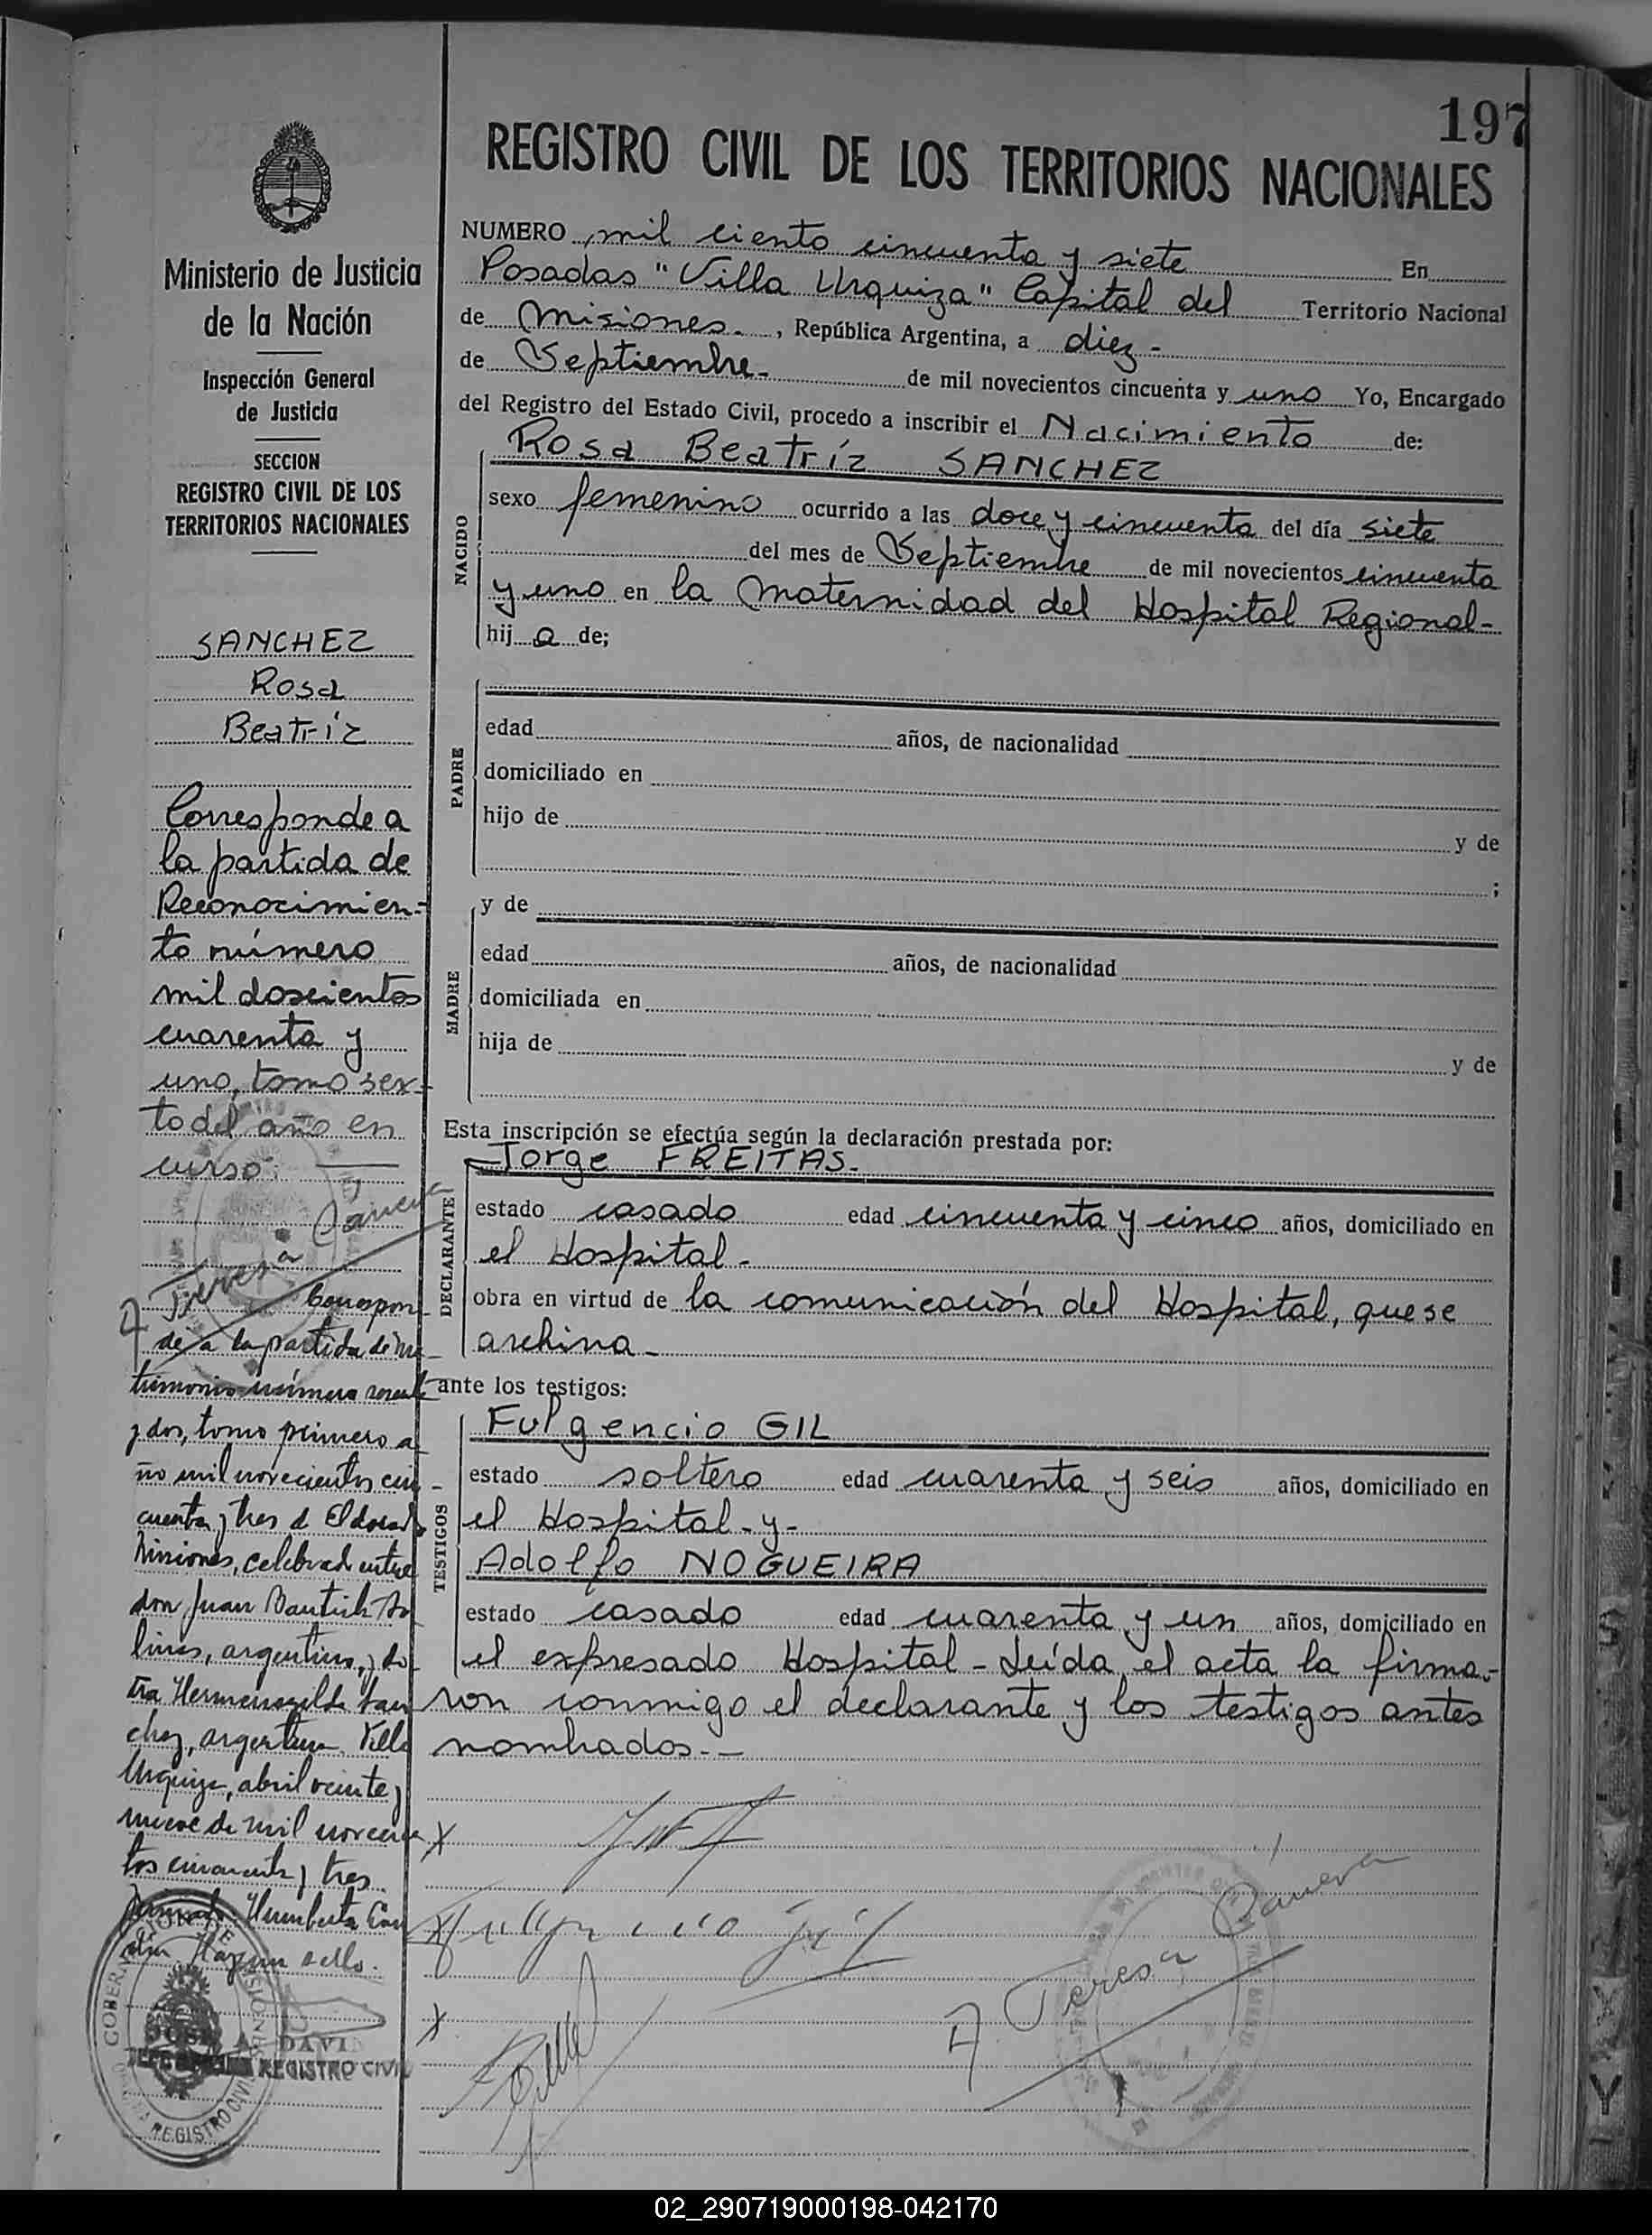 197
REGISTRO CIVIL DE LOS TERRITORIOS NACIONALES
Ministerio de Justicia
de la Nación
Inspección General
de Justicia
SECCION
REGISTRO CIVIL DE LOS
TERRITORIOS NACIONALES
SANCHEZ
Rosa
Beatríz
Corresponde a
la partida de
Reconocimien-
to número
mil doscientos
cuarenta y
uno, tomo sex-
to del año en
curso.
A Teresa
Correspon-
de a la partida de ma-
trimonio número
y dos, tomo primero a
ño mil novecientos cin-
cuenta y tres de Eldorado
Misiones, celebrado entre
don Juan Bautista
argentino, y do-
ña Hermenegilda San
chez, argentina. Villa
Urquiza, abril veinte y
nueve de mil novecien
tos cincuenta y tres
Firmado: Humberto
Hay un sello.
GOBERNACION DE MISIONES
JOSE A. DAVI
REGISTRO CIVIL
REGISTRO CIVIL
NUMERO mil ciento cincuenta y siete En
Posadas "Villa Urquiza" Capital del Territorio Nacional
de Misiones. , República Argentina, a diez -
de Septiembre - de mil novecientos cincuenta y uno Yo, Encargado
del Registro del Estado Civil, procedo a inscribir el Nacimiento de:
Rosa Beatríz SANCHEZ
NACIDO
sexo femenino ocurrido a las doce y cincuenta del día siete
del mes de Septiembre de mil novecientos cincuenta
y uno en la Maternidad del Hospital Regional-
hij a de;
PADRE
edad años, de nacionalidad
domiciliado en
hijo de y de
;
MADRE
y de
edad años, de nacionalidad
domiciliada en
hija de y de
Esta inscripción se efectúa según la declaración prestada por:
Jorge FREITAS-
DECLARANTE
estado casado edad cincuenta y cinco años, domiciliado en
el Hospital-
obra en virtud de la comunicación del Hospital, que se
archiva-
ante los testigos:
TESTIGOS
Fulgencio GIL
estado soltero edad cuarenta y seis años, domiciliado en
el Hospital-y-
Adolfo NOGUEIRA
estado casado edad cuarenta y un años, domiciliado en
el expresado Hospital-Leída el acta la firma-
ron conmigo el declarante y los testigos antes
nombrados.-
X
X Fulgencio Gil
X
A Teresa
02_290719000198-042170